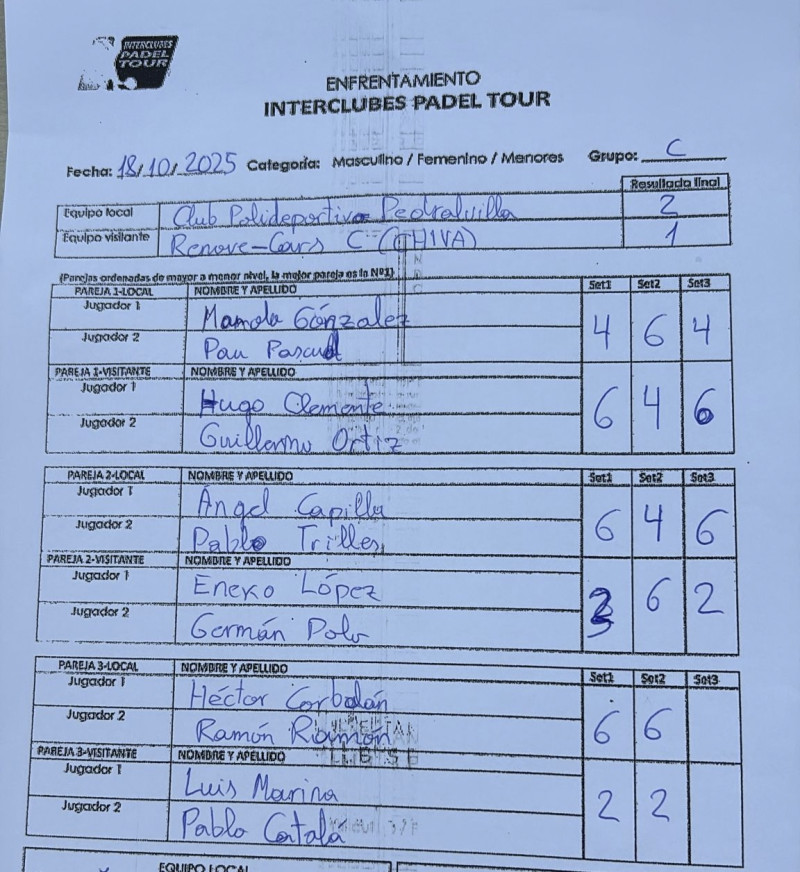 INTERCLUBES
PADEL
TOUR
ENFRENTAMIENTO
INTERCLUBES PADEL TOUR
Fecha: 18/10/2025 Categoría: Masculino / Femenino / Menores Grupo: C
Resultado final
Equipo local Club Polideportivo Pedralvilla 2
Equipo visitante Renove-Cars C (CHIVA) 1
(Parejas ordenadas de mayor a menor nivel, la mejor pareja es la Nº1)
PAREJA 1-LOCAL NOMBRE Y APELLIDO Set1 Set2 Set3
Jugador 1 Manolo Gónzalez 4 6 4
Jugador 2 Pau Pascual
PAREJA 1-VISITANTE NOMBRE Y APELLIDO
Jugador 1 Hugo Clemente 6 4 6
Jugador 2 Guillermo Ortiz
PAREJA 2-LOCAL NOMBRE Y APELLIDO Set1 Set2 Set3
Jugador 1 Ángel Capilla 6 4 6
Jugador 2 Pablo Trilles
PAREJA 2-VISITANTE NOMBRE Y APELLIDO
Jugador 1 Eneko López 6 2
Jugador 2 Germán Polo
PAREJA 3-LOCAL NOMBRE Y APELLIDO Set1 Set2 Set3
Jugador 1 Héctor Corbalán 6 6
Jugador 2 Ramón Ramón
PAREJA 3-VISITANTE NOMBRE Y APELLIDO
Jugador 1 Luis Marina 2 2
Jugador 2 Pablo Catalá
EQUIPO LOCAL